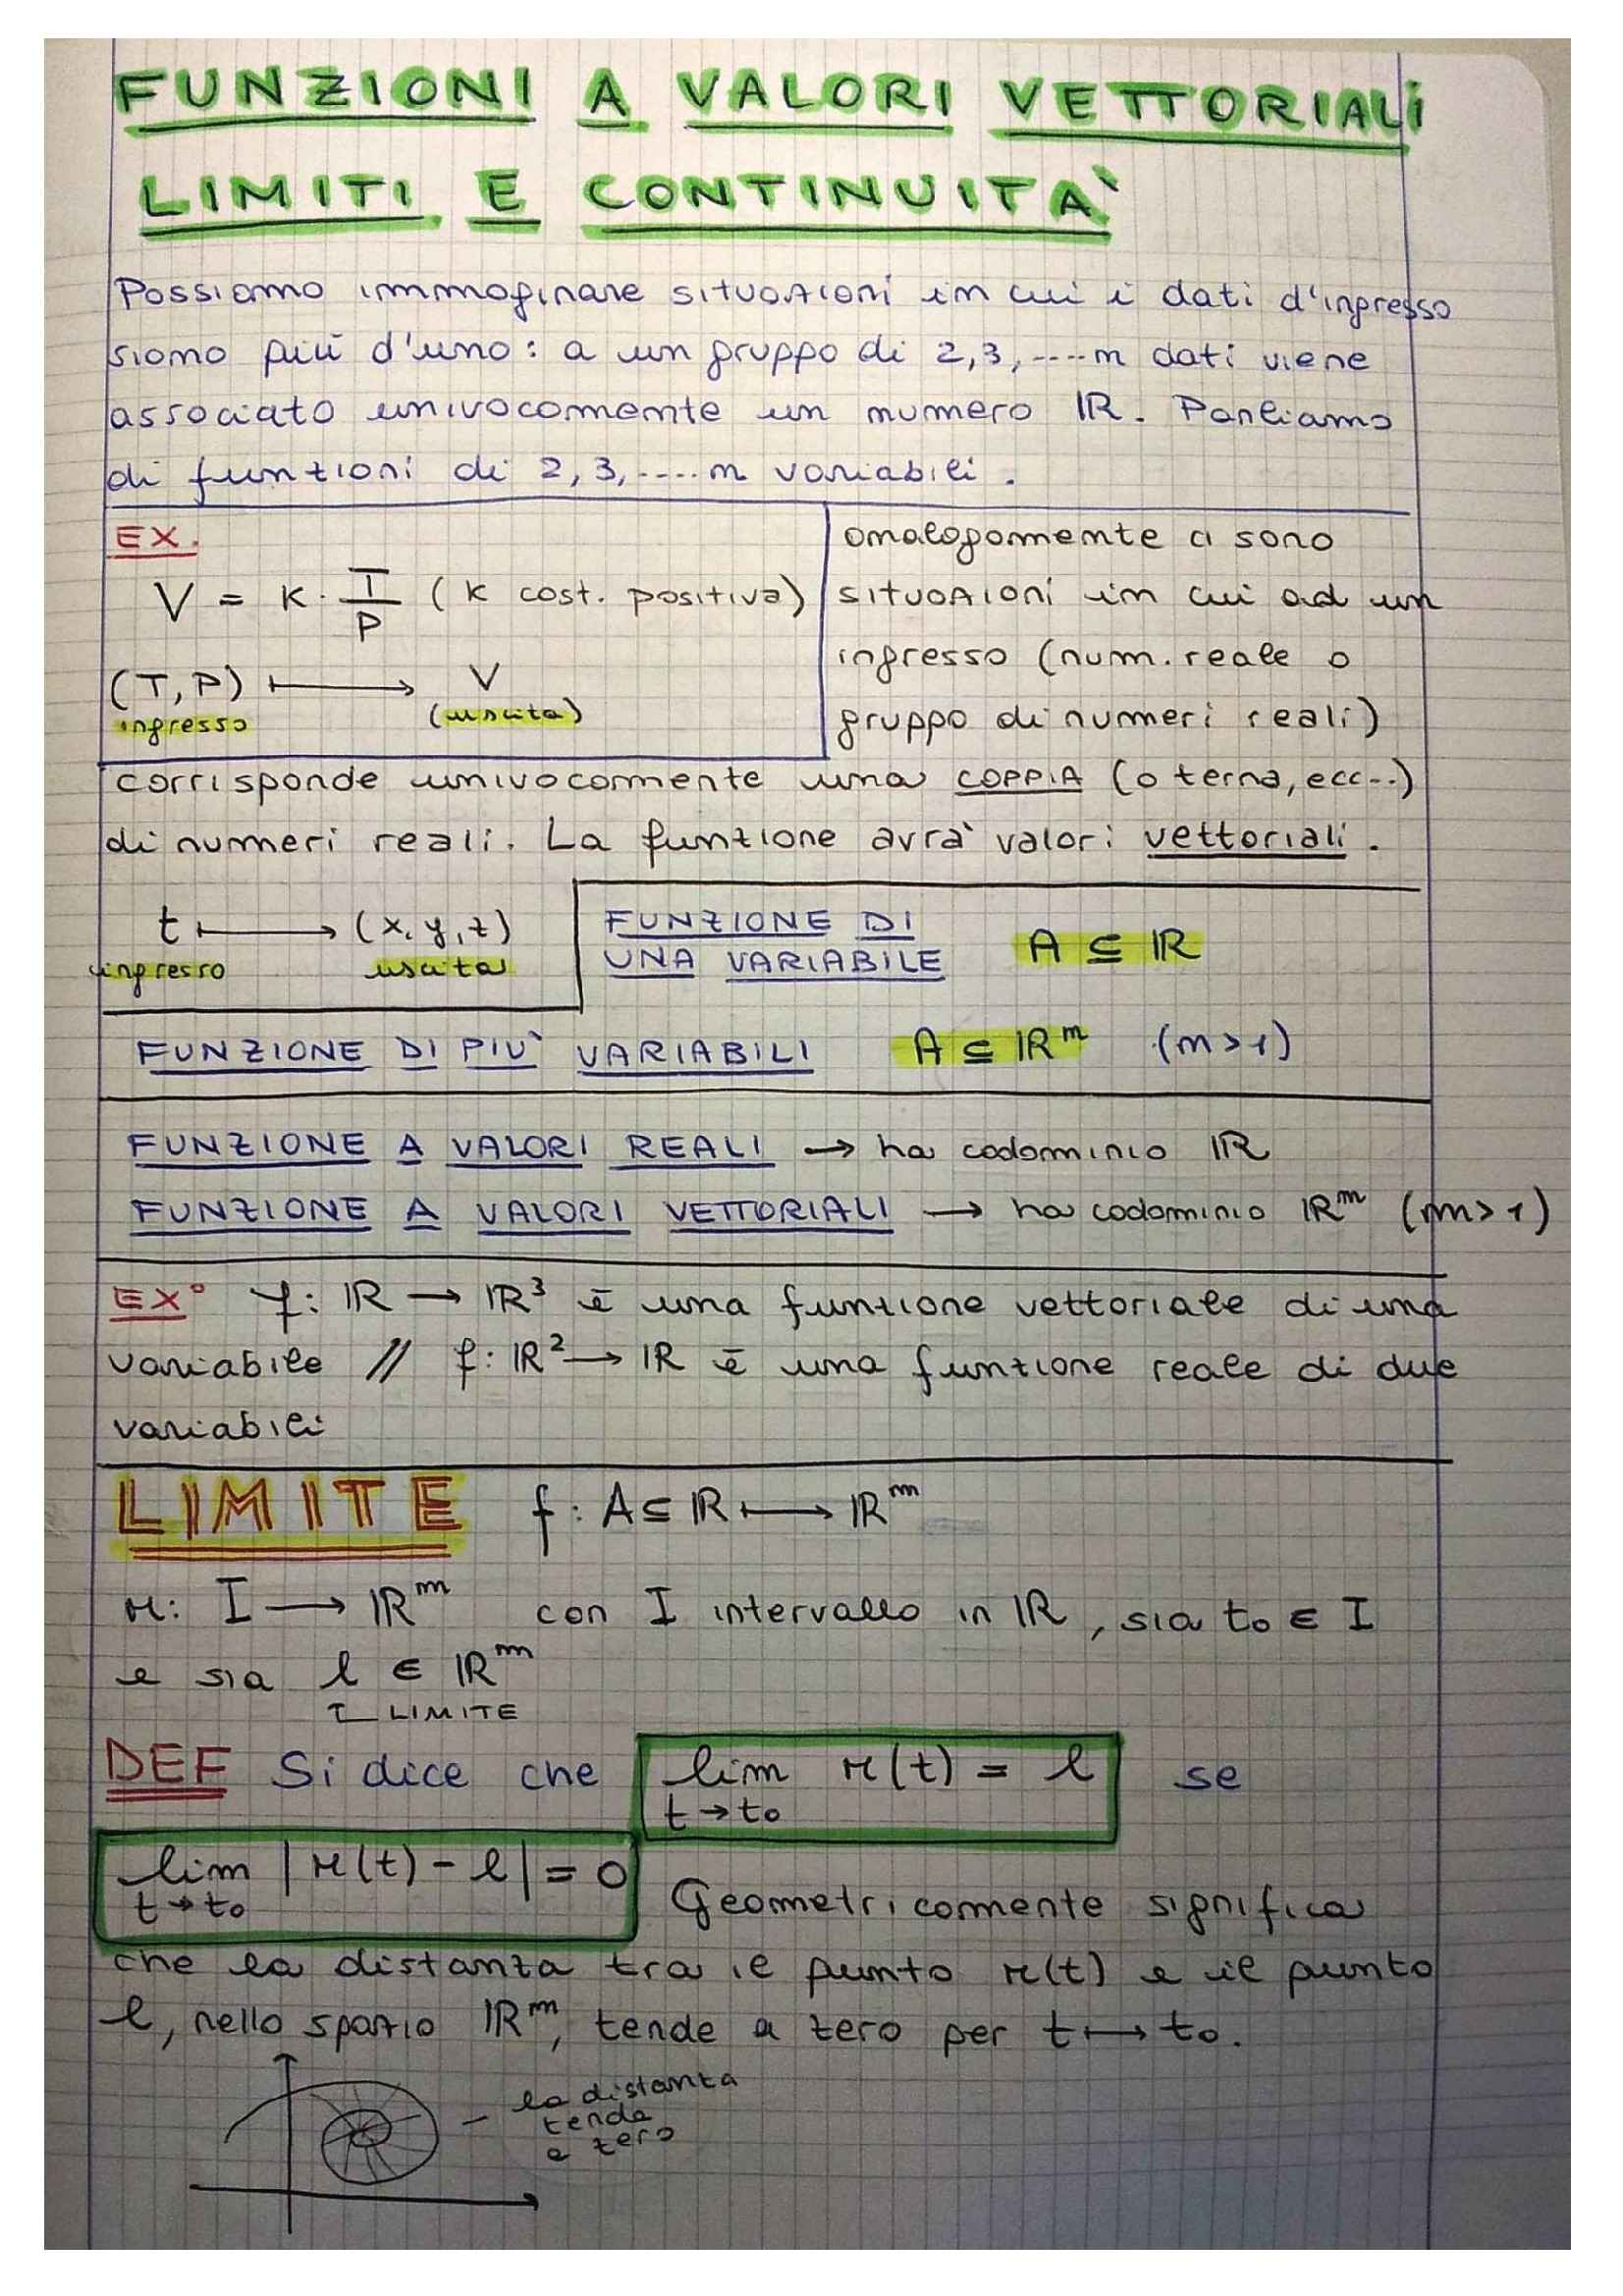 FUNZIONI A VALORI VETTORIALI
LIMITI E CONTINUITA'
Possiamo immaginare situazioni in cui i dati d'ingresso
siano più d'uno: a un gruppo di 2,3,....n dati viene
associato univocamente un numero ℝ. Parliamo
di funzioni di 2,3,....n variabili.
EX.
V = K · T/P (K cost. positiva)
(T,P) ⟼ V
ingresso (uscita)
analogamente ci sono
situazioni in cui ad un
ingresso (num. reale o
gruppo di numeri reali)
corrisponde univocamente una COPPIA (o terna, ecc..)
di numeri reali. La funzione avrà valori vettoriali.
t ⟼ (x,y,z)
ingresso uscita
FUNZIONE DI
UNA VARIABILE A ⊆ ℝ
FUNZIONE DI PIU' VARIABILI A ⊆ ℝⁿ (n>1)
FUNZIONE A VALORI REALI → ha codominio ℝ
FUNZIONE A VALORI VETTORIALI → ha codominio ℝᵐ (m>1)
EX° f: ℝ → ℝ³ è una funzione vettoriale di una
variabile // f: ℝ² → ℝ è una funzione reale di due
variabili
LIMITE f: A ⊆ ℝ ⟼ ℝᵐ
r: I → ℝᵐ con I intervallo in ℝ, sia t₀ ∈ I
e sia l ∈ ℝᵐ
LIMITE
DEF Si dice che lim r(t) = l se
t→t₀
lim |r(t) - l| = 0
t→t₀
Geometricamente significa
che la distanza tra il punto r(t) e il punto
l, nello spazio ℝᵐ, tende a zero per t ⟼ t₀.
la distanza
tende
a zero